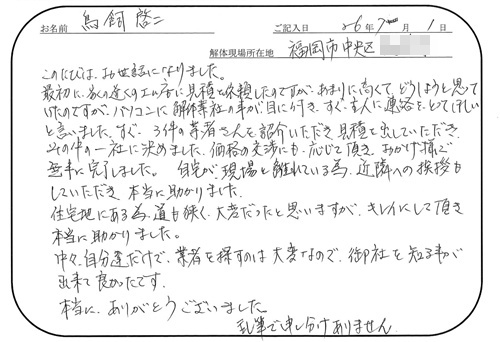 お名前 鳥飼 啓二 ご記入日 26年 7月 1日
解体現場所在地 福岡市中央区
このたびは、お世話になりました。
最初に、家の近くの工ム店に見積を依頼したのですが、あまりに高くて、どうしようと思って
いたのですが、パソコンに解体業社の事が、目に付き、すぐ、主人に連絡をとってほしい
と言いました。すぐ、3件の業者さんを紹介いただき見積を出していただき、
その中の一社に決めました、価格の交渉にも、応じて頂き、おかげ様で
無事に完了しました。 自宅が現場と離れている為、近隣への挨拶も
していただき、本当に助かりました。
住宅地にある為、道も狭く、大変だったと思いますが、キレイにして頂き
本当に助かりました。
中々、自分達だけで、業者を探すのは大変なので、御社を知る事が
出来て良かったです。
本当に、ありがとうございました。
乱筆で申し分けありません